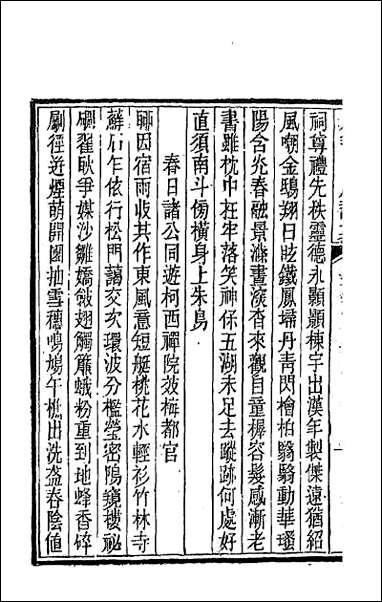 祠尊禮先秩靈德永顯顯棟宇出漢年製傑遠猶紹
風嘲金鴟翔日眩鐵鳳墆丹青閃檜柏翳翳動華璚
陽含兆春融景滌晝滾香來觀自童樨容髮感漸老
書雖枕中在牢落笑神伓五湖未足去蹤跡何處好
直須南斗傍橫身上朱鳥
春日諸公同遊柯西禪院效梅都官
聊因宿雨收其作東風意短艇桃花水輕衫竹林寺
蘚石乍依行松門藹交次環波分檻瑩密隖鏡稜祕
翟耿爭媒沙雛嬌斂翅觸簾蛾粉重到地蜂香碎
刷徑迸煙萌開園抽雪穗鳴鳩午樵出洗盞春陰値